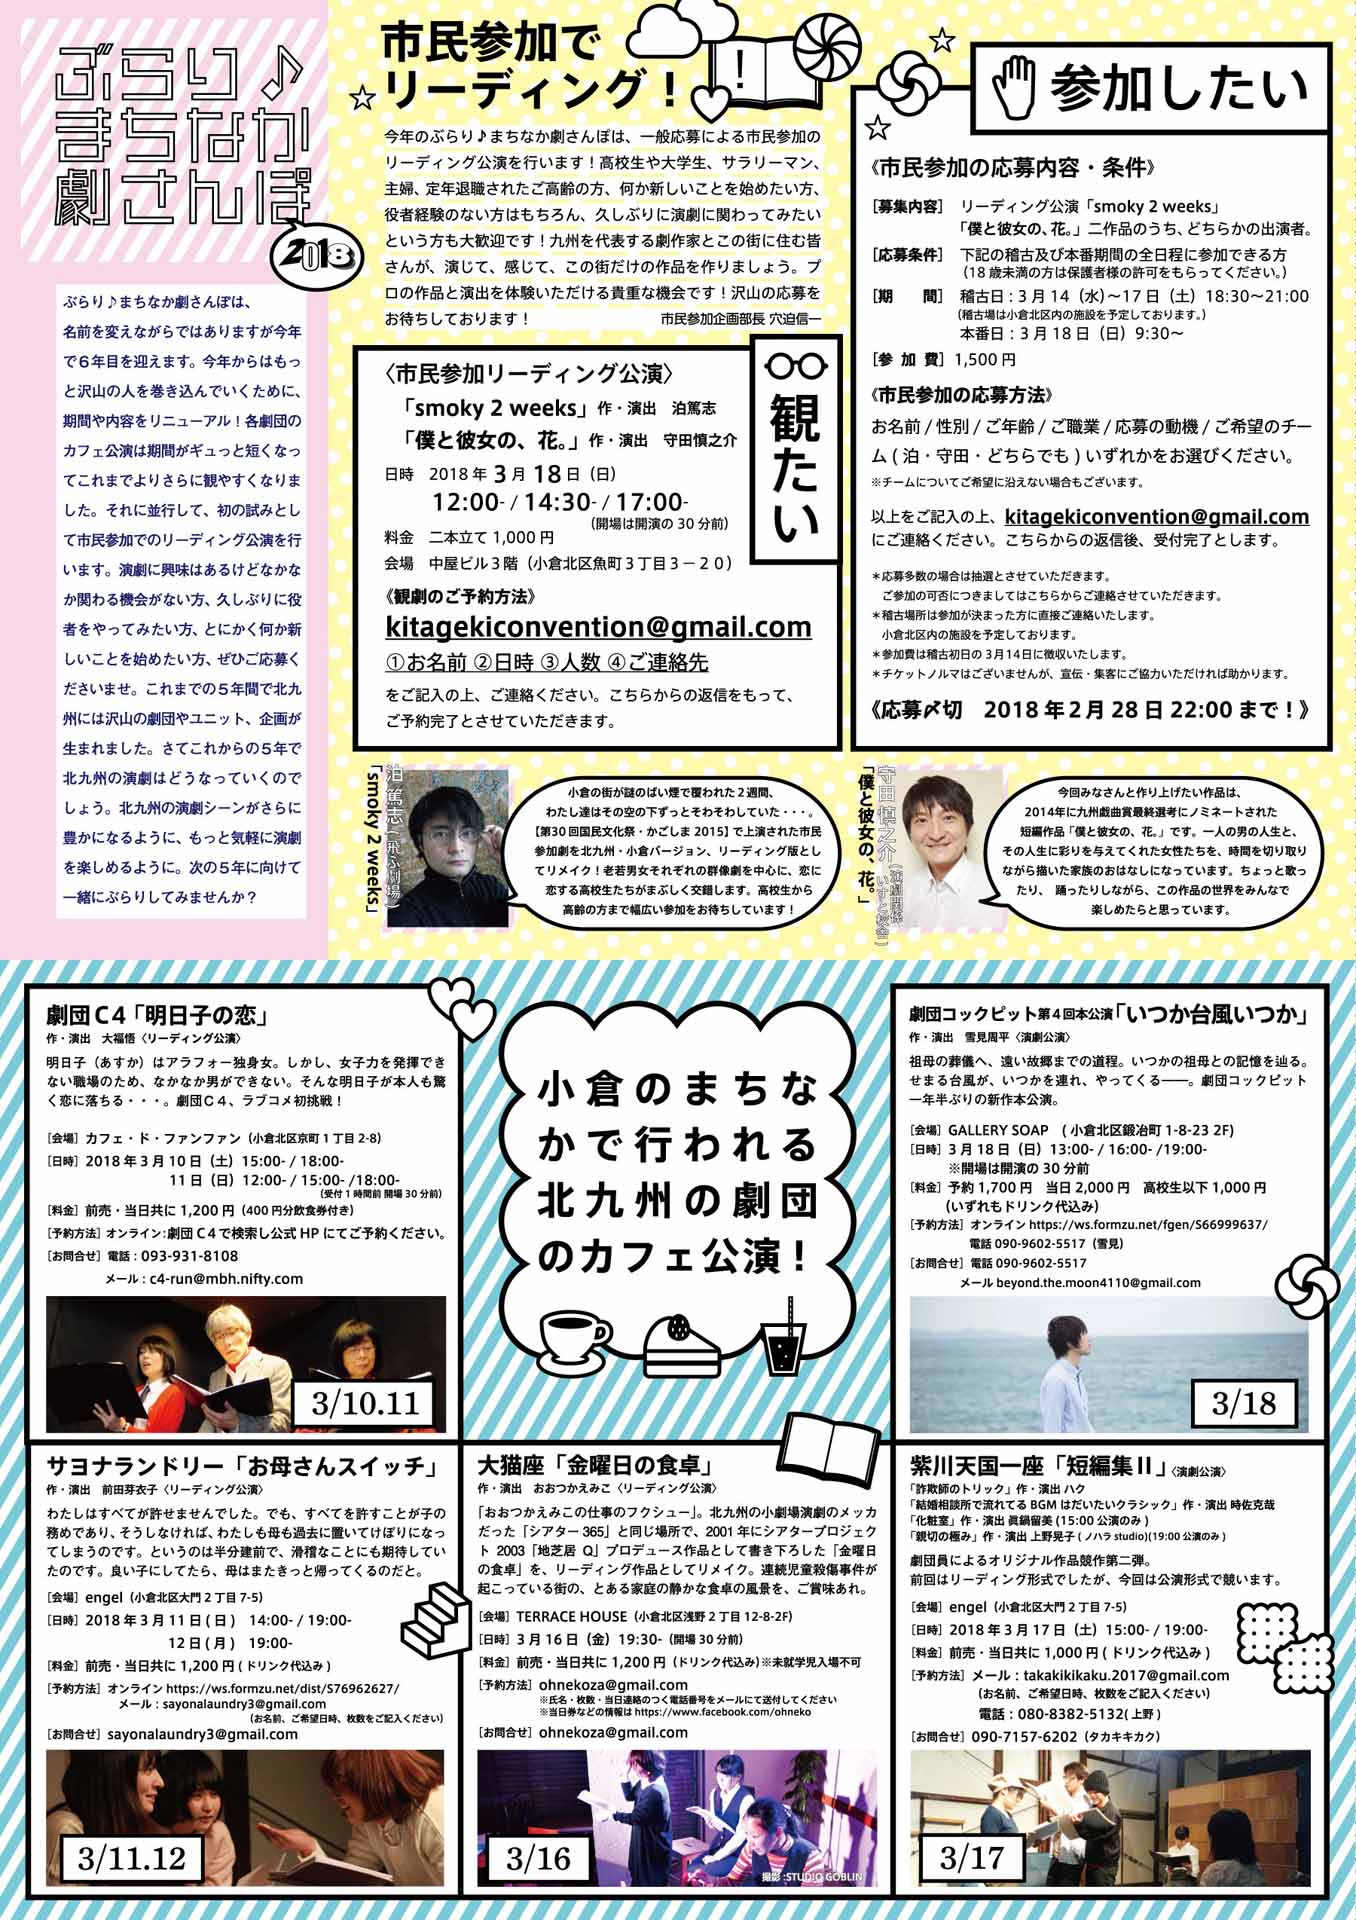 ぶらり♪
まちなか
劇さんぽ
2018
ぶらり♪まちなか劇さんぽは、
名前を変えながらではありますが今年
で６年目を迎えます。今年からはもっ
と沢山の人を巻き込んでいくために、
期間や内容をリニューアル！各劇団の
カフェ公演は期間がギュっと短くなっ
てこれまでよりさらに観やすくなりま
した。それに並行して、初の試みとし
て市民参加でのリーディング公演を行
います。演劇に興味はあるけどなかな
か関わる機会がない方、久しぶりに役
者をやってみたい方、とにかく何か新
しいことを始めたい方、ぜひご応募く
ださいませ。これまでの５年間で北九
州には沢山の劇団やユニット、企画が
生まれました。さてこれからの５年で
北九州の演劇はどうなっていくので
しょう。北九州の演劇シーンがさらに
豊かになるように、もっと気軽に演劇
を楽しめるように。次の５年に向けて
一緒にぶらりしてみませんか？
市民参加で
リーディング！
!
今年のぶらり♪まちなか劇さんぽは、一般応募による市民参加の
リーディング公演を行います！高校生や大学生、サラリーマン、
主婦、定年退職されたご高齢の方、何か新しいことを始めたい方、
役者経験のない方はもちろん、久しぶりに演劇に関わってみたい
という方も大歓迎です！九州を代表する劇作家とこの街に住む皆
さんが、演じて、感じて、この街だけの作品を作りましょう。プ
ロの作品と演出を体験いただける貴重な機会です！沢山の応募を
お待ちしております！ 市民参加企画部長 穴迫信一
観たい
〈市民参加リーディング公演〉
「smoky 2 weeks」作・演出 泊篤志
「僕と彼女の、花。」作・演出 守田慎之介
日時 2018年3月18日（日）
12:00- / 14:30- / 17:00-
（開場は開演の30分前）
料金 二本立て1,000円
会場 中屋ビル３階（小倉北区魚町３丁目３－２０）
《観劇のご予約方法》
kitagekiconvention@gmail.com
①お名前 ②日時 ③人数 ④ご連絡先
をご記入の上、ご連絡ください。こちらからの返信をもって、
ご予約完了とさせていただきます。
参加したい
《市民参加の応募内容・条件》
［募集内容］ リーディング公演「smoky 2 weeks」
「僕と彼女の、花。」二作品のうち、どちらかの出演者。
［応募条件］ 下記の稽古及び本番期間の全日程に参加できる方
（18歳未満の方は保護者様の許可をもらってください。）
［期 間］ 稽古日：3月14（水）～17日（土）18:30～21:00
（稽古場は小倉北区内の施設を予定しております。）
本番日：3月18日（日）9:30～
［参加費］1,500円
《市民参加の応募方法》
お名前/性別/ご年齢/ご職業/応募の動機/ご希望のチー
ム(泊・守田・どちらでも)いずれかをお選びください。
※チームについてご希望に沿えない場合もございます。
以上をご記入の上、kitagekiconvention@gmail.com
にご連絡ください。こちらからの返信後、受付完了とします。
＊応募多数の場合は抽選とさせていただきます。
ご参加の可否につきましてはこちらからご連絡させていただきます。
＊稽古場所は参加が決まった方に直接ご連絡いたします。
小倉北区内の施設を予定しております。
＊参加費は稽古初日の3月14日に徴収いたします。
＊チケットノルマはございませんが、宣伝・集客にご協力いただければ助かります。
《応募〆切 2018年2月28日22:00まで！》
泊 篤志（飛ぶ劇場）
「smoky 2 weeks」
小倉の街が謎のばい煙で覆われた２週間、
わたし達はその空の下ずっとそわそわしていた・・・。
【第30回国民文化祭・かごしま2015】で上演された市民
参加劇を北九州・小倉バージョン、リーディング版とし
てリメイク！老若男女それぞれの群像劇を中心に、恋に
恋する高校生たちがまぶしく交錯します。高校生から
高齢の方まで幅広い参加をお待ちしています！
守田 慎之介（演劇関係いすと校舎）
「僕と彼女の、花。」
今回みなさんと作り上げたい作品は、
2014年に九州戯曲賞最終選考にノミネートされた
短編作品「僕と彼女の、花。」です。一人の男の人生と、
その人生に彩りを与えてくれた女性たちを、時間を切り取り
ながら描いた家族のおはなしになっています。ちょっと歌っ
たり、踊ったりしながら、この作品の世界をみんなで
楽しめたらと思っています。
劇団C4「明日子の恋」
作・演出 大福悟〈リーディング公演〉
明日子（あすか）はアラフォー独身女。しかし、女子力を発揮でき
ない職場のため、なかなか男ができない。そんな明日子が本人も驚
く恋に落ちる・・・。劇団C4、ラブコメ初挑戦！
［会場］カフェ・ド・ファンファン（小倉北区京町1丁目2-8）
［日時］2018年3月10日（土）15:00- / 18:00-
11日（日）12:00- / 15:00- /18:00-
（受付1時間前 開場30分前）
［料金］前売・当日共に1,200円（400円分飲食券付き）
［予約方法］オンライン：劇団C4で検索し公式HPにてご予約ください。
［お問合せ］電話：093-931-8108
メール：c4-run@mbh.nifty.com
3/10.11
小倉のまちな
かで行われる
北九州の劇団
のカフェ公演！
劇団コックピット第４回本公演「いつか台風いつか」
作・演出 雪見周平〈演劇公演〉
祖母の葬儀へ、遠い故郷までの道程。いつかの祖母との記憶を辿る。
せまる台風が、いつかを連れ、やってくる――。劇団コックピット
一年半ぶりの新作本公演。
［会場］GALLERY SOAP (小倉北区鍛冶町1-8-23 2F)
［日時］3月18日（日）13:00- / 16:00- /19:00-
※開場は開演の30分前
［料金］予約1,700円 当日2,000円 高校生以下1,000円
（いずれもドリンク代込み）
［予約方法］オンラインhttps://ws.formzu.net/fgen/S66999637/
電話090-9602-5517（雪見）
［お問合せ］電話090-9602-5517
メールbeyond.the.moon4110@gmail.com
3/18
サヨナランドリー「お母さんスイッチ」
作・演出 前田芽衣子〈リーディング公演〉
わたしはすべてが許せませんでした。でも、すべてを許すことが子の
務めであり、そうしなければ、わたしも母も過去に置いてけぼりになっ
てしまうのです。というのは半分建前で、滑稽なことにも期待してい
たのです。良い子にしてたら、母はまたきっと帰ってくるのだと。
［会場］engel（小倉北区大門2丁目7-5）
［日時］2018年3月11日(日) 14:00- / 19:00-
12日(月) 19:00-
［料金］前売・当日共に1,200円(ドリンク代込み)
［予約方法］オンラインhttps://ws.formzu.net/dist/S76962627/
メール：sayonalaundry3@gmail.com
（お名前、ご希望日時、枚数をご記入ください）
［お問合せ］sayonalaundry3@gmail.com
3/11.12
大猫座「金曜日の食卓」
作・演出 おおつかえみこ〈リーディング公演〉
「おおつかえみこの仕事のフクシュー」。北九州の小劇場演劇のメッカ
だった「シアター365」と同じ場所で、2001年にシアタープロジェク
ト2003「地芝居 Q」プロデュース作品として書き下ろした「金曜日
の食卓」を、リーディング作品としてリメイク。連続児童殺傷事件が
起こっている街の、とある家庭の静かな食卓の風景を、ご賞味あれ。
［会場］TERRACE HOUSE（小倉北区浅野2丁目12-8-2F）
［日時］3月16日（金）19:30-（開場30分前）
［料金］前売・当日共に1,200円（ドリンク代込み）※未就学児入場不可
［予約方法］ohnekoza@gmail.com
※氏名・枚数・当日連絡のつく電話番号をメールにて送付してください
※当日券などの情報はhttps://www.facebook.com/ohneko
［お問合せ］ohnekoza@gmail.com
3/16
撮影:STUDIO GOBLIN
紫川天国一座「短編集Ⅱ」〈演劇公演〉
「詐欺師のトリック」作・演出 ハク
「結婚相談所で流れてるBGMはだいたいクラシック」作・演出 時佐克哉
「化粧室」作・演出 眞鍋留美(15:00公演のみ)
「親切の極み」作・演出 上野晃子(ノハラstudio)(19:00公演のみ)
劇団員によるオリジナル作品競作第二弾。
前回はリーディング形式でしたが、今回は公演形式で競います。
［会場］engel（小倉北区大門2丁目7-5）
［日時］2018年3月17日（土）15:00- / 19:00-
［料金］前売・当日共に1,000円(ドリンク代込み)
［予約方法］メール：takakikikaku.2017@gmail.com
（お名前、ご希望日時、枚数をご記入ください）
電話：080-8382-5132(上野)
［お問合せ］090-7157-6202（タカキキカク）
3/17